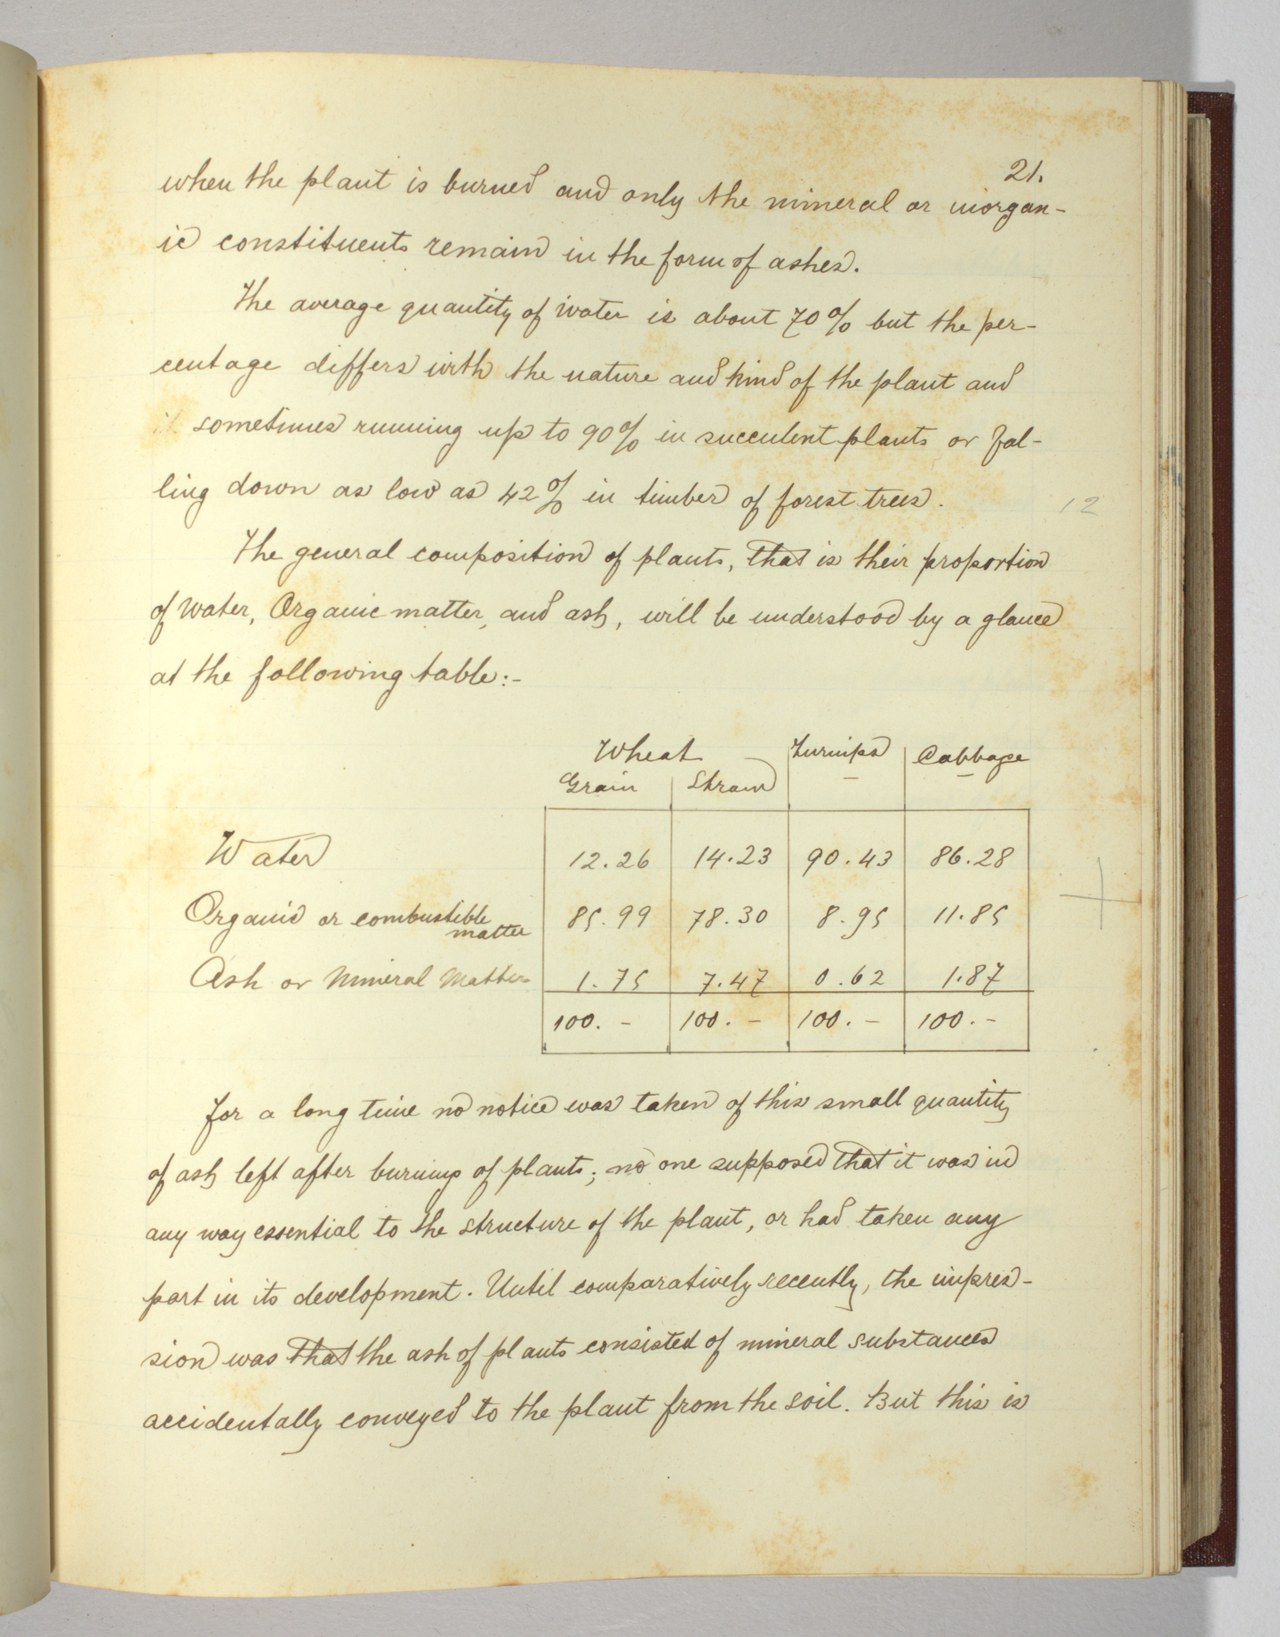 21.
when the plant is burned and only the mineral or inorgan-
ic constituents remain in the form of ashes.
The average quantity of water is about 70% but the per-
centage differs with the nature and kind of the plant and
sometimes running up to 90% in succulent plants or fal-
ling down as low as 42% in timber of forest trees.
12
The general composition of plants, that is their proportion
of water, Organic matter, and ash, will be understood by a glance
at the following table:-
Wheat Turnips Cabbage
Grain Straw
Water 12.26 14.23 90.43 86.28
Organic or combustible matter 85.99 78.30 8.95 11.85
Ash or Mineral Matter 1.75 7.47 0.62 1.87
100. - 100. - 100. - 100. -
For a long time no notice was taken of this small quantity
of ash left after burning of plants; no one supposed that it was in
any way essential to the structure of the plant, or had taken any
part in its development. Until comparatively recently, the impres-
sion was that the ash of plants consisted of mineral substances
accidentally conveyed to the plant from the soil. But this is